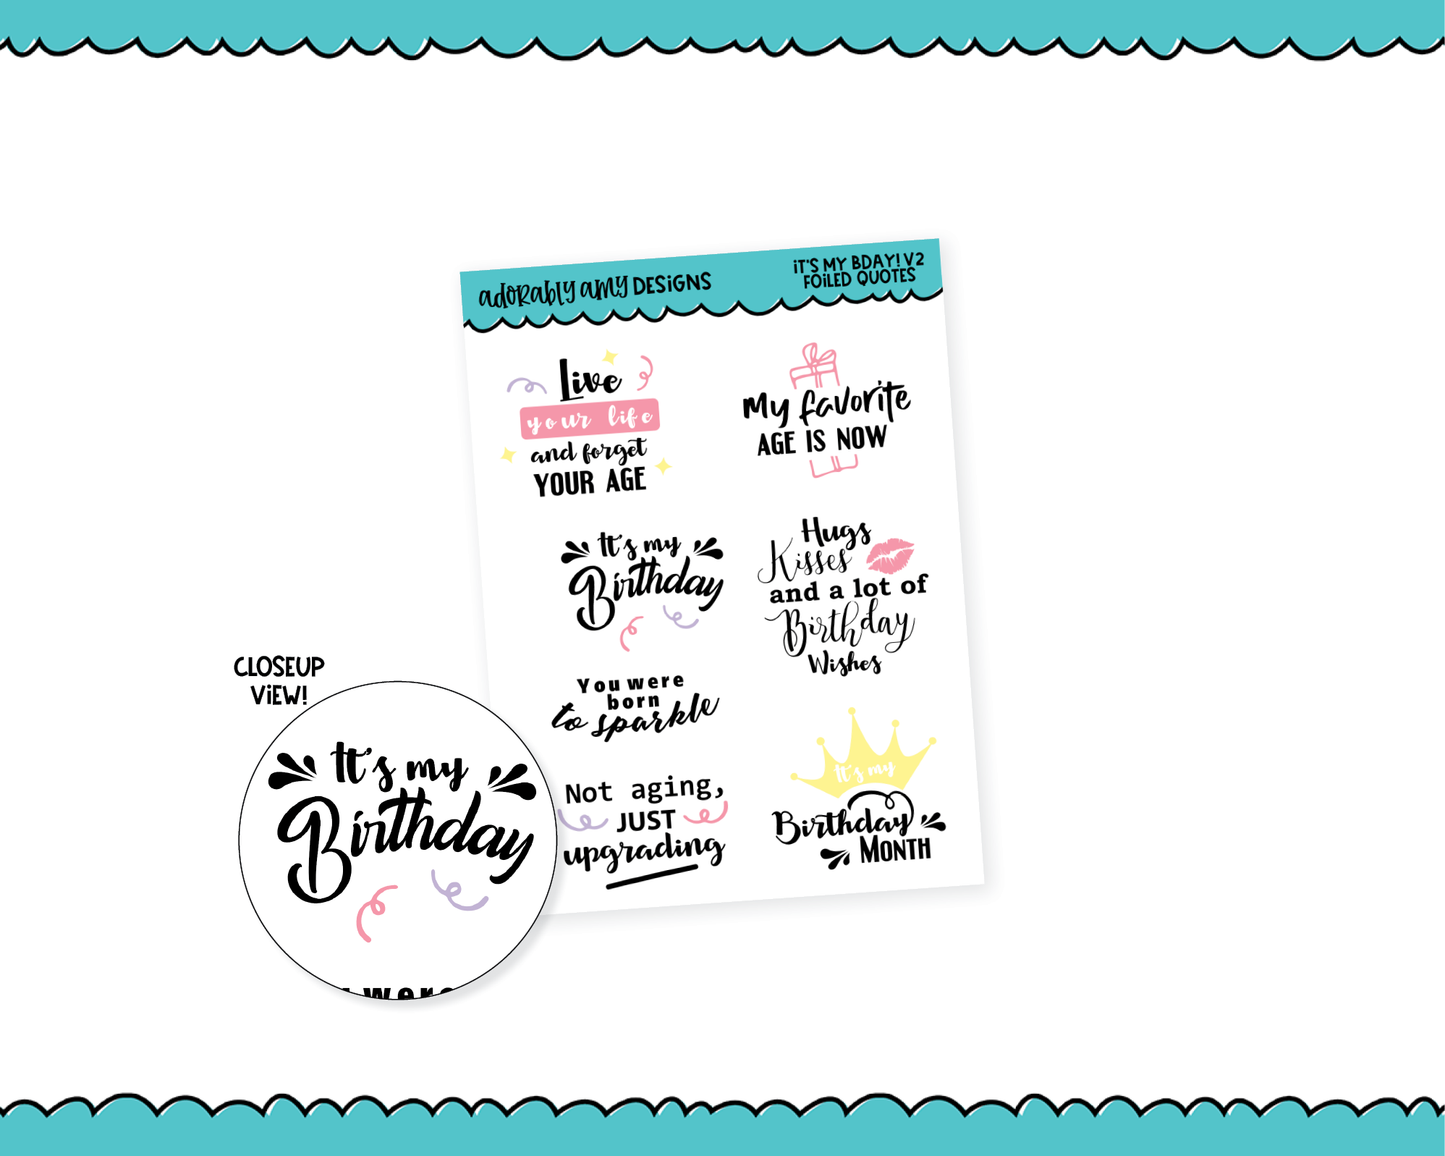 adorably amy DESiGNS
iT'S MY BDAY! V2
FOiLED QUOTES
Live
your life
and forget
YOUR AGE
My favorite
AGE IS NOW
It's my
Birthday
Hugs
Kisses
and a lot of
Birthday
Wishes
You were
born
to sparkle
Not aging,
JUST
upgrading
It's my
Birthday
MONTH
CLOSEUP
ViEW!
It's my
Birthday
were